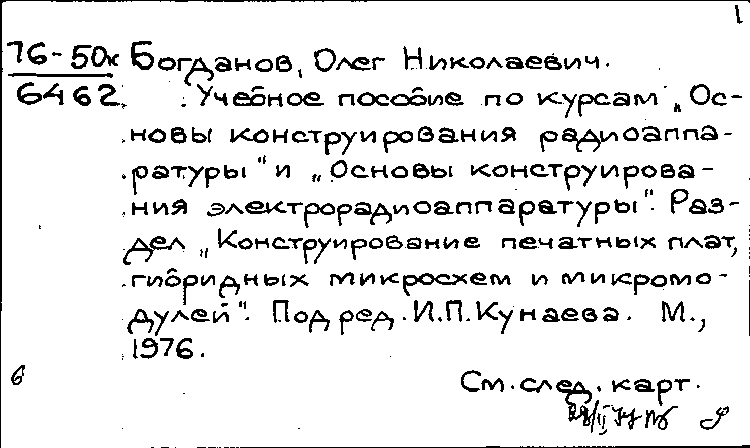 1
76-50к Богданов, Олег Николаевич.
6462 Учебное пособие по курсам „Ос-
новы конструирования радиоаппа-
ратуры" и „Основы конструирова-
ния электрорадиоаппаратуры". Раз-
дел „Конструирование печатных плат,
гибридных микросхем и микромо-
дулей". Под ред. И.П.Кунаева. М.,
1976.
б
См. след. карт.